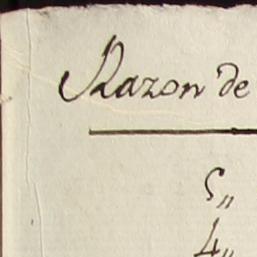 Razon de
5"
4"